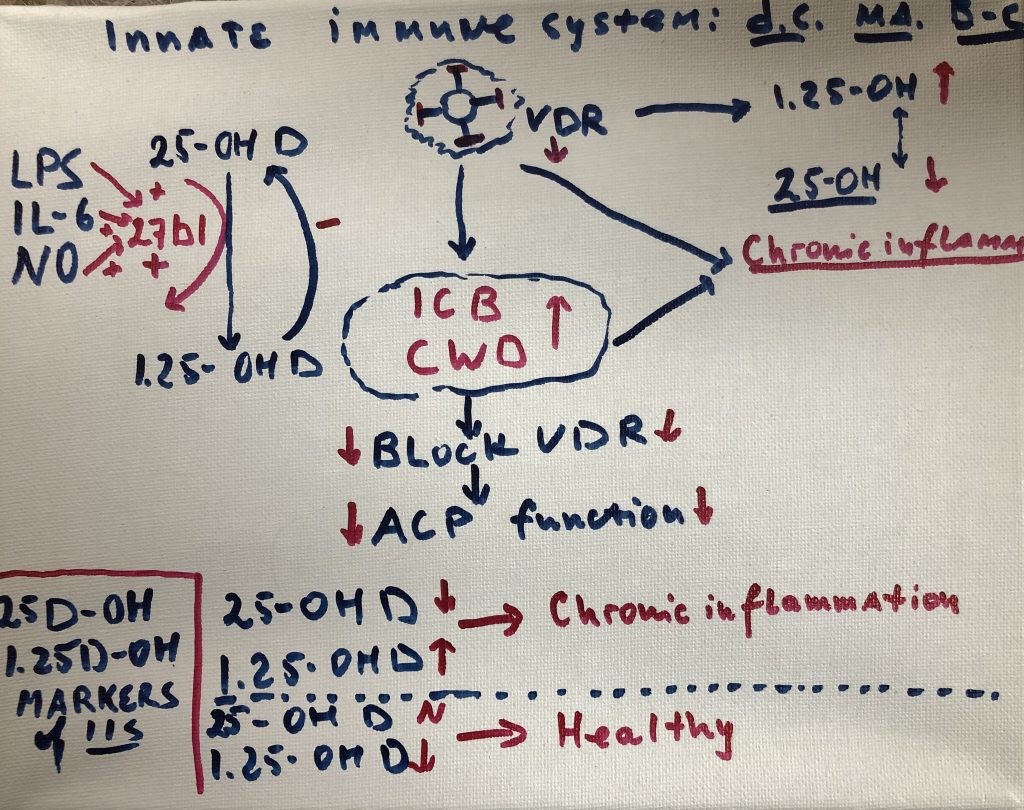 Innate immune system: d.c. MA. B-C
VDR ↓ → 1.25-OH ↑
25-OH ↓
Chronic inflammat
LPS
IL-6
NO
25-OH D
+
+ 27b1
+ +
-
1.25-OH D
ICB ↑
CWD
↓ BLOCK VDR ↓
↓ ACP function ↓
25D-OH
1.25D-OH
MARKERS
of IIS
25-OH D ↓ → Chronic inflammation
1.25-OH D ↑
25-OH D N → Healthy
1.25-OH D ↓